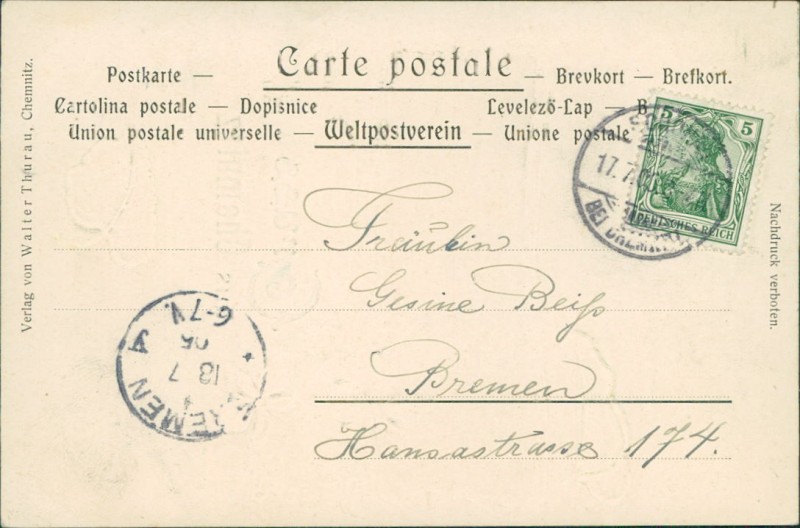 Carte postale
Postkarte — — Brevkort — Brefkort.
Cartolina postale — Dopisnice Levelező-Lap — B
Union postale universelle — Weltpostverein — Unione postale
5 5
DEUTSCHES REICH
17. 7.
BEI BREMEN
Fräulein
Gesine Beiß
Bremen
Hansastrasse 174.
BREMEN A
18 7
05
6-7V.
Verlag von Walter Thurau, Chemnitz.
Nachdruck verboten.